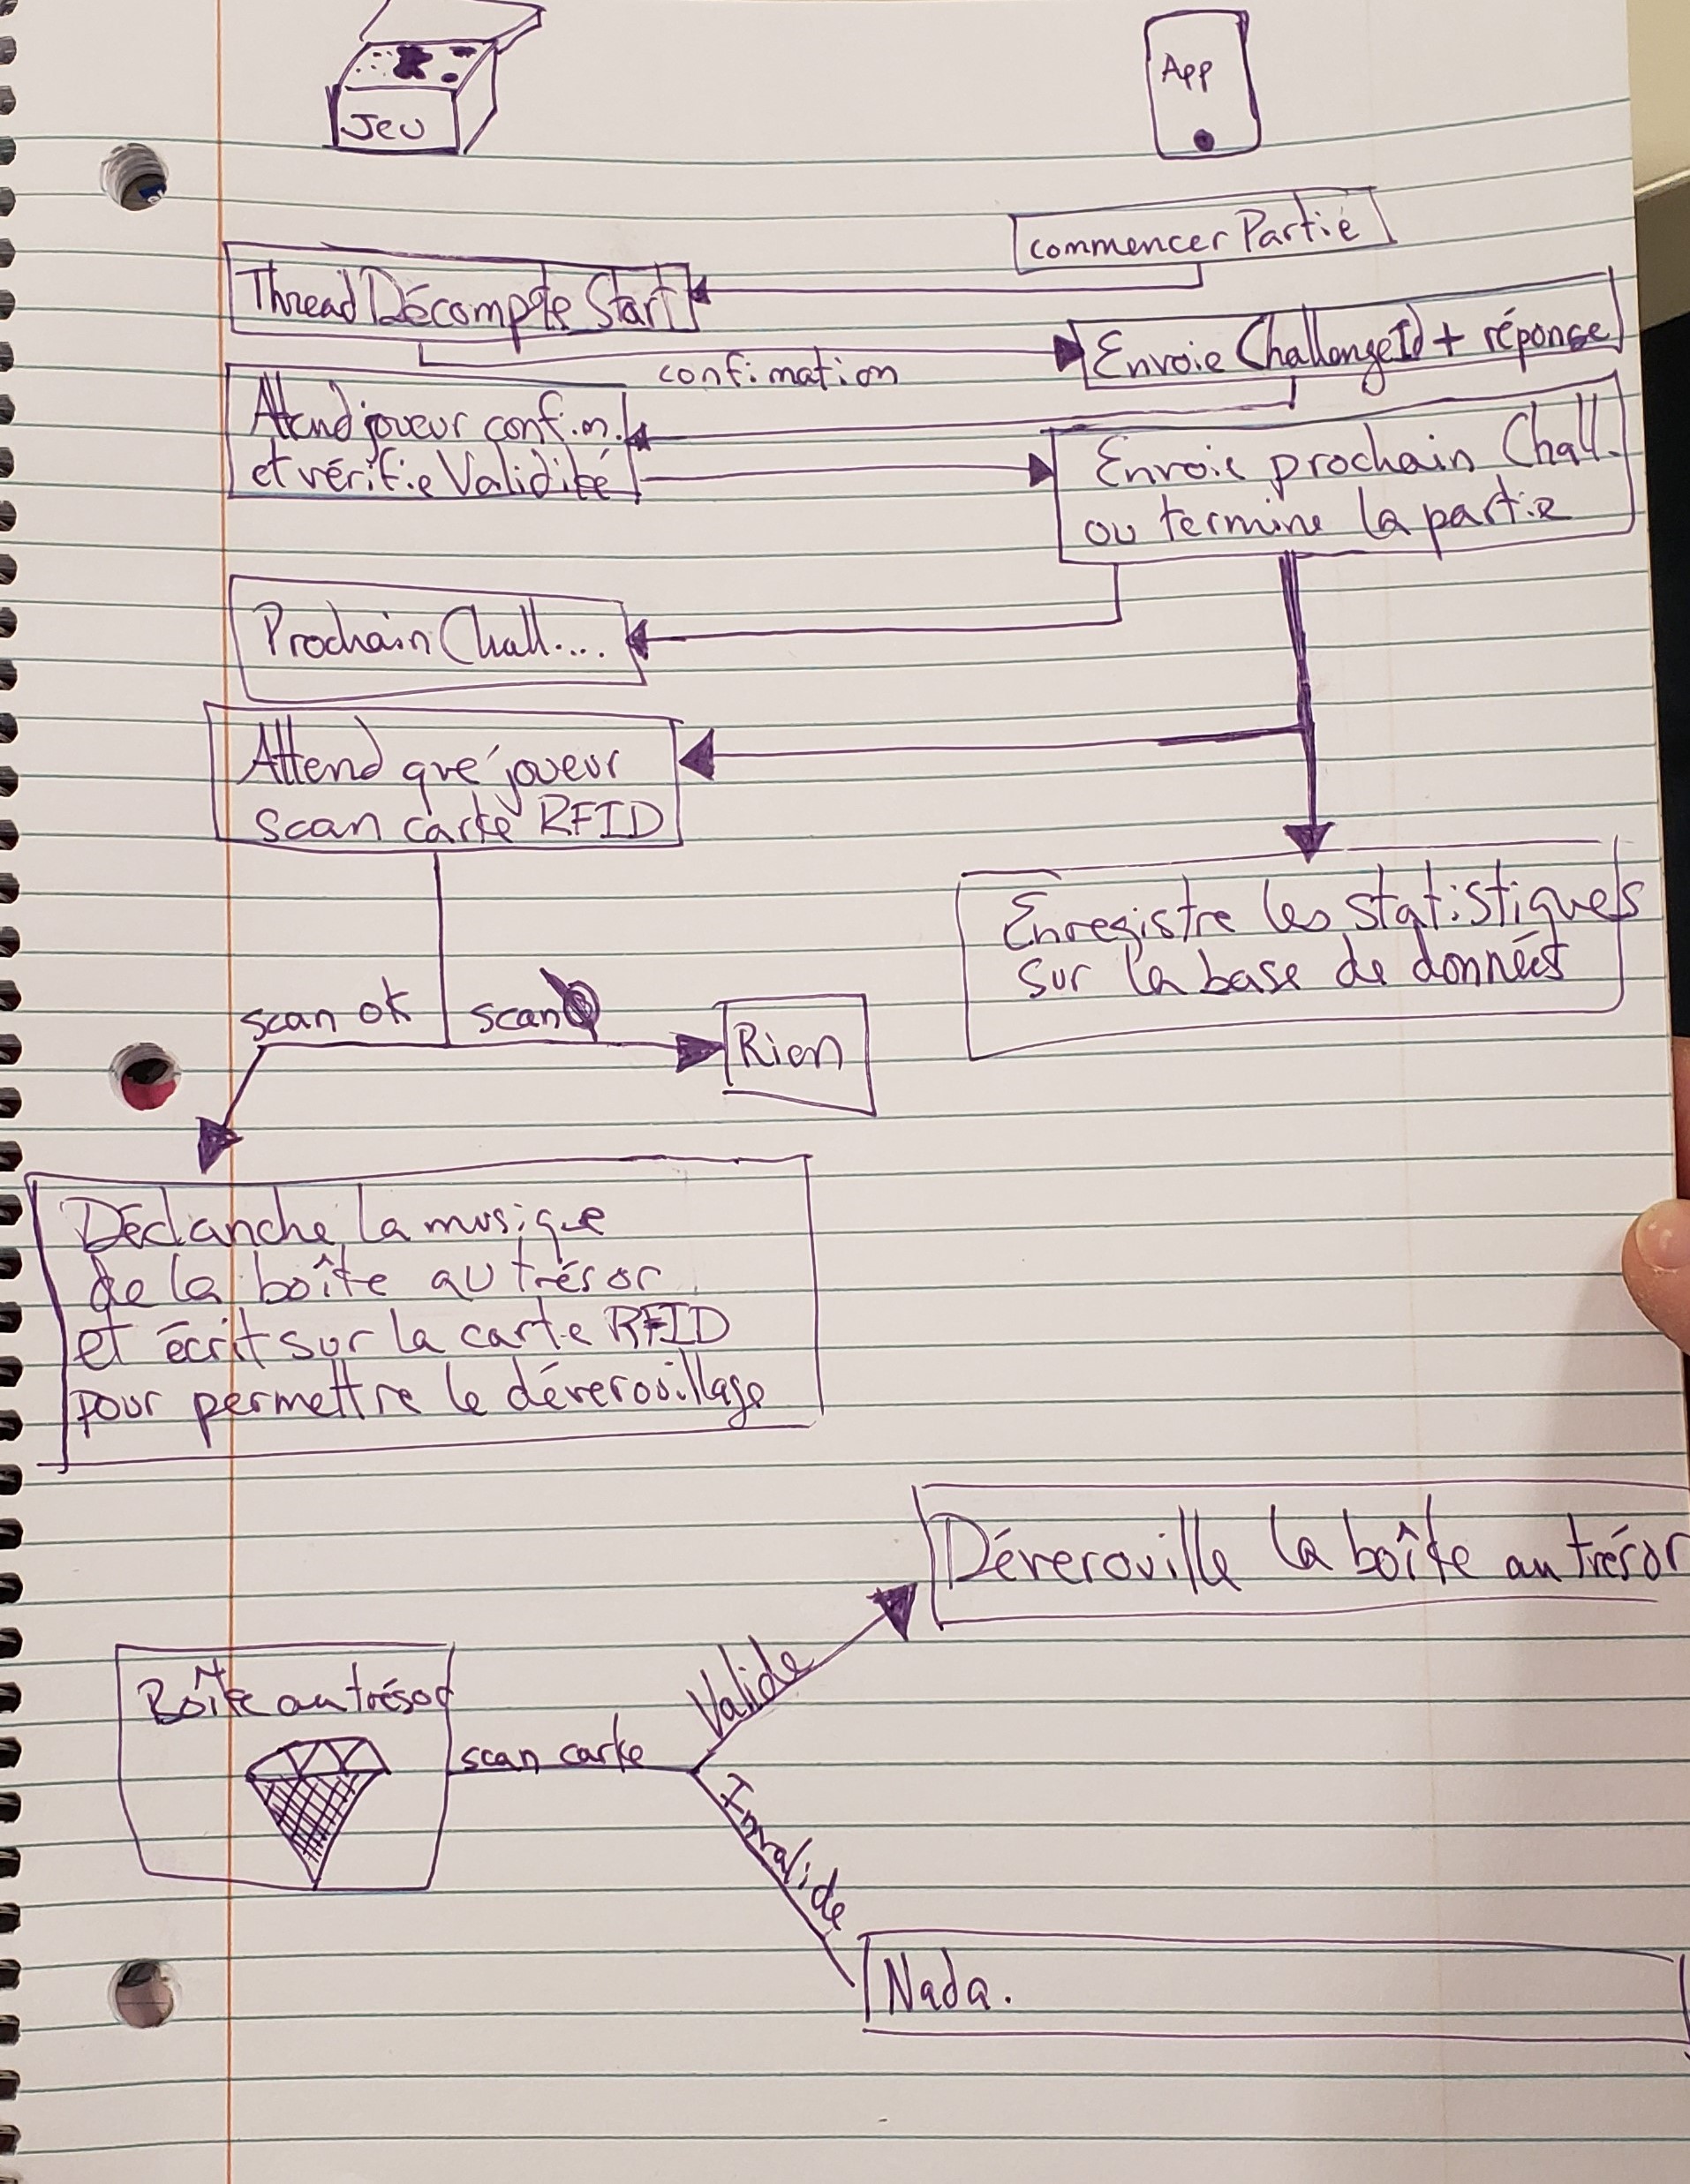 Jeu
App
commencer Partie
Thread Décompte Start
confimation
Envoie ChallengeId + réponse
Attend joueur confirm.
et vérifie Validité
Envoie prochain Chall.
ou termine la partie
Prochain Chall....
Attend que joueur
scan carte RFID
Enregistre les statistiques
sur la base de données
scan ok
scan
Rien
Déclanche la musique
de la boîte au trésor
et écrit sur la carte RFID
pour permettre le déverouillage
Déverouille la boîte au trésor
Valide
Boîte au trésor
scan carte
Invalide
Nada.